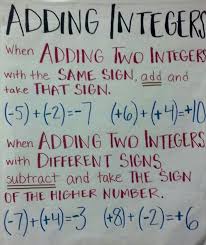 ADDING INTEGERS
When ADDING TWO INTEGERS
with the SAME SIGN, add and
take THAT SIGN.
(-5)+(-2)=-7 (+6)+(+4)=+10
When ADDING TWO INTEGERS
with DIFFERENT SIGNS
subtract and take THE SIGN
OF THE HIGHER NUMBER.
(-7)+(+4)=-3 (+8)+(-2)=+6